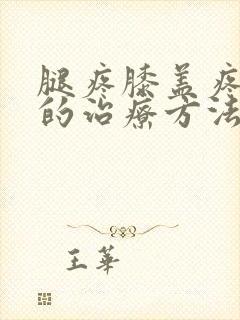 腿疼膝盖疼
的治疗方法
王華